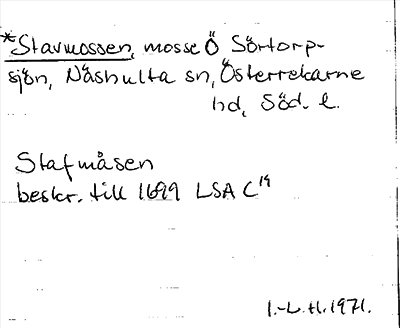 *Stavmossen, mosse Ö Sörtorp-
sjön, Näshulta sn, Österrekarne
hd, Söd. l.
Stafmåsen
beskr. till 1699 LSA C19
I.-L. H. 1971.